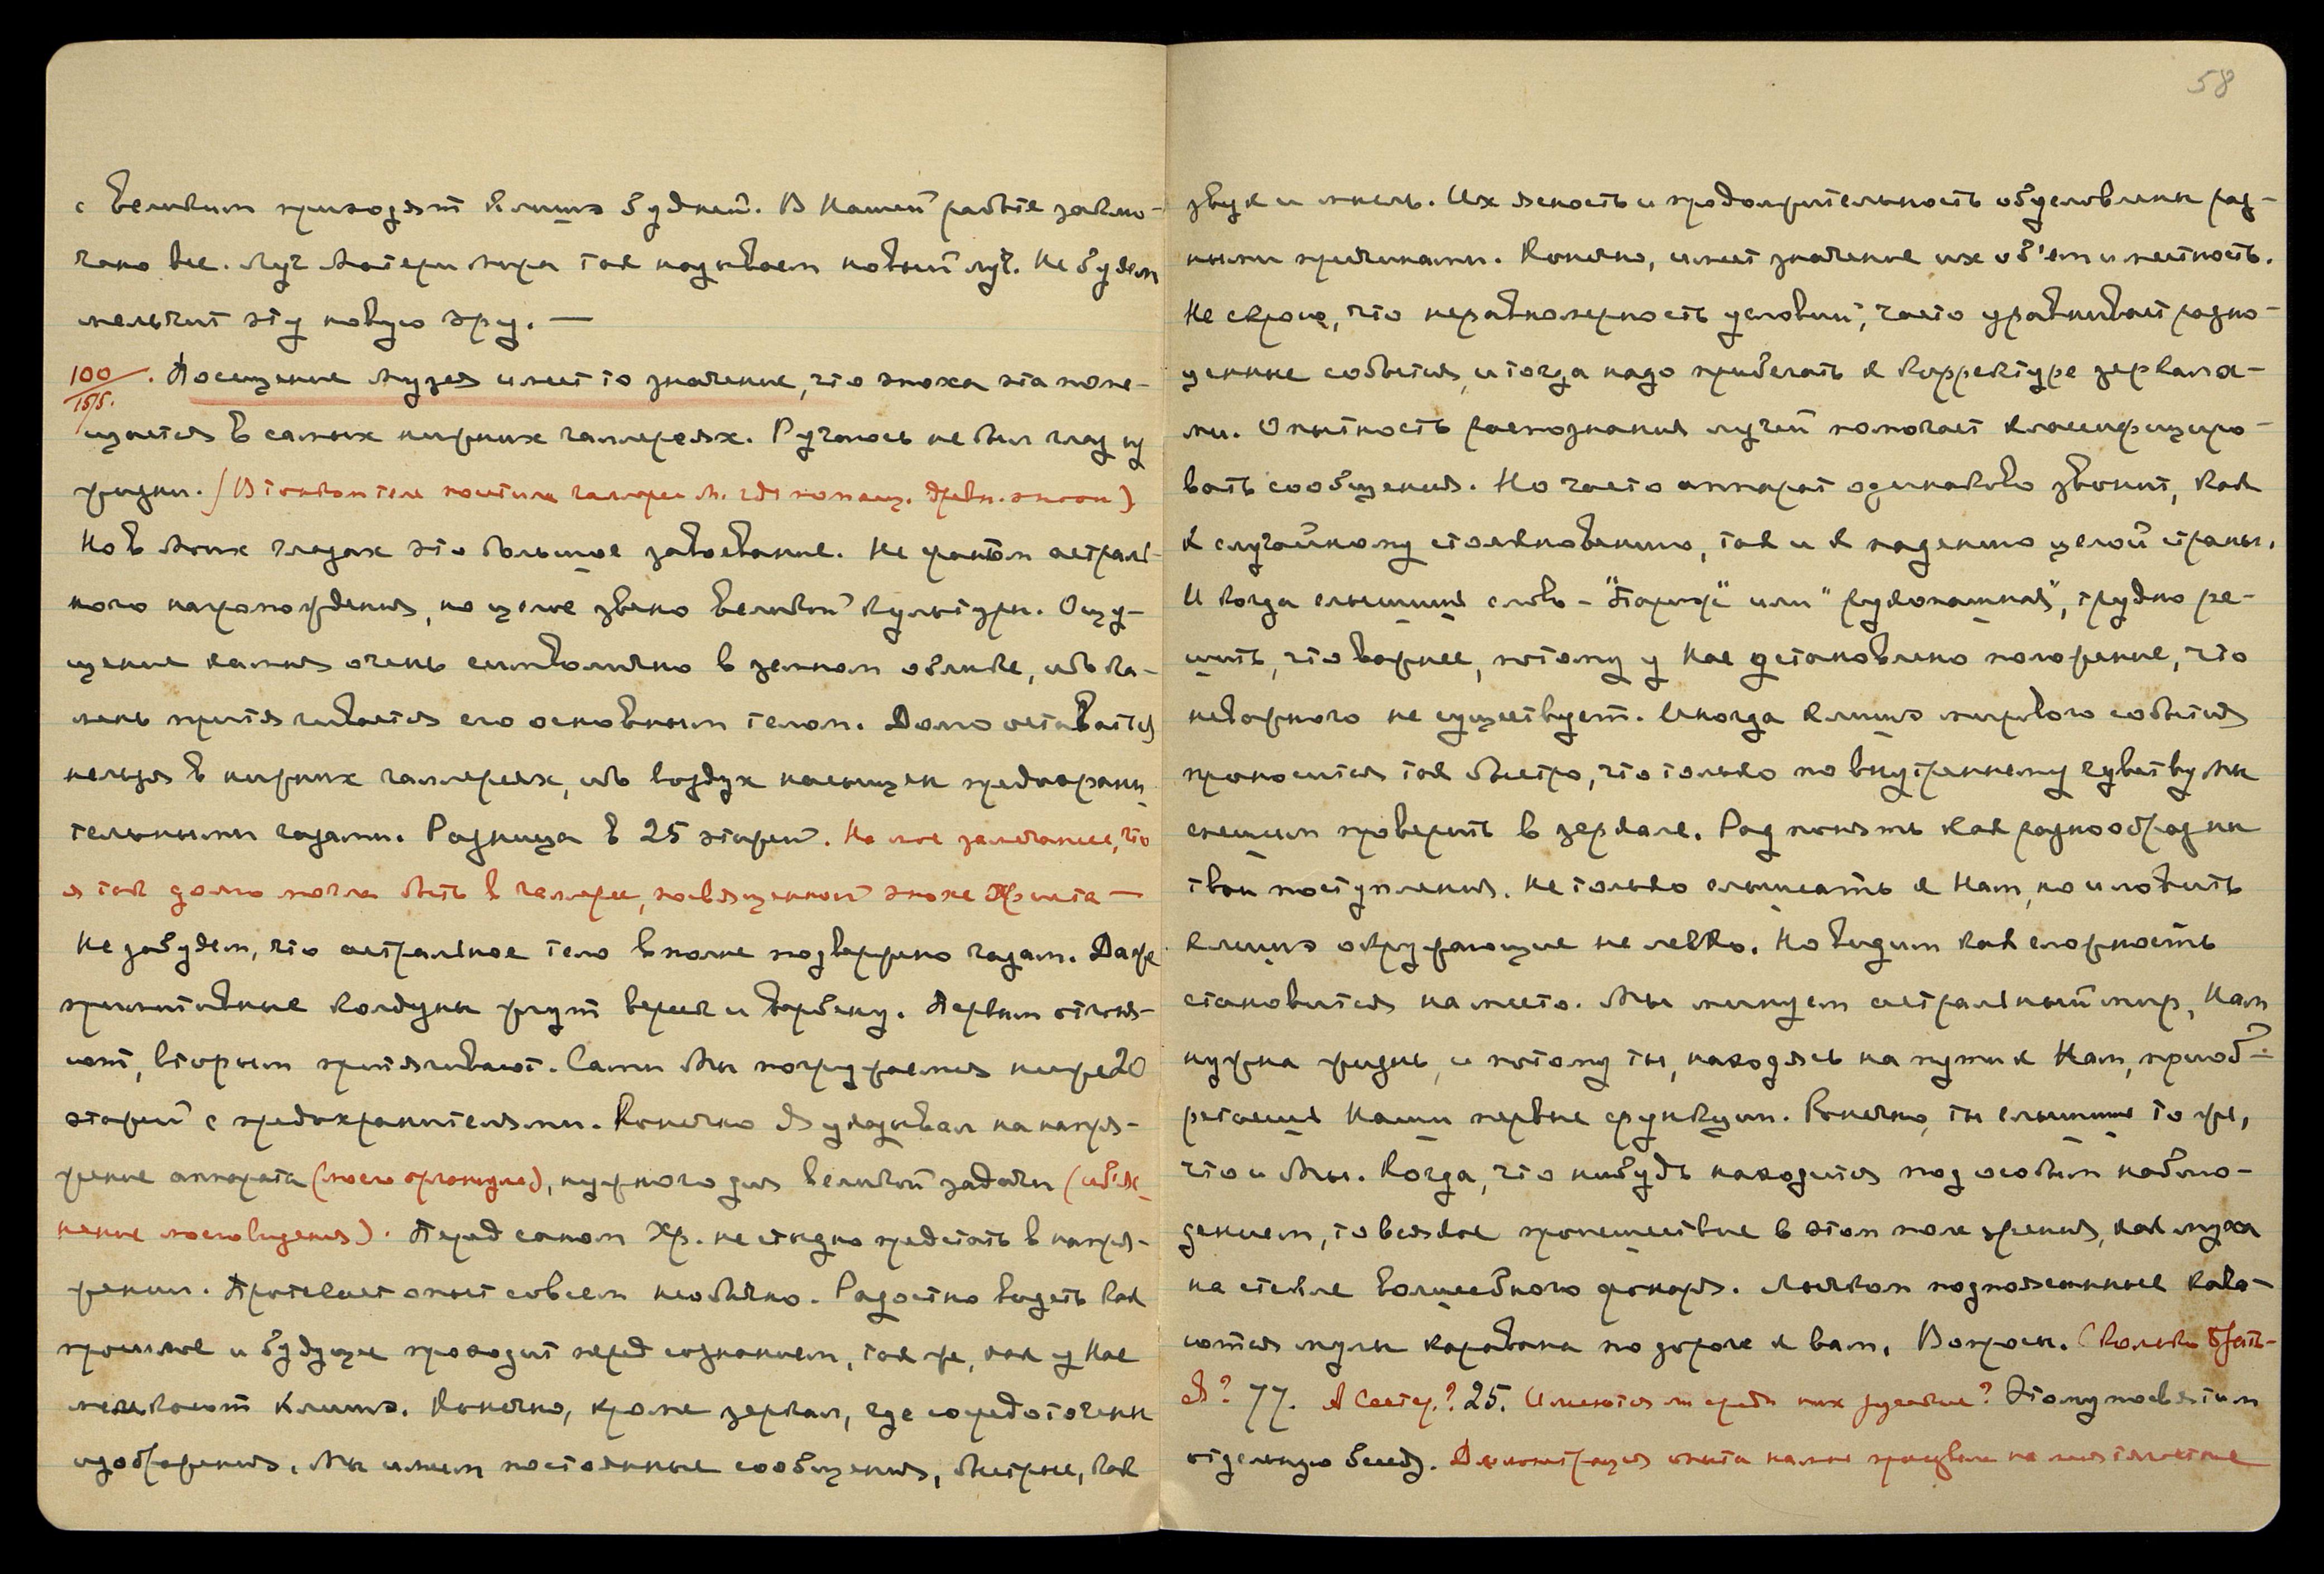 58
с великим приходят клише будней. В Нашей работе заклю-
чено все. Луч Матери Мира так называем новый луч. Не будем
мельчит эту новую эру. —
100/15/5. Посещение Музея имеет то значение, что эпоха эта поме-
щается в самых нижних галлереях. Ручаюсь не был глаз из
жизни. (В тонком теле посетила галлереи М. где помещ. древн. эпохи)
Но в Моих глазах это большое завоевание. Не фантом астраль-
ного нагромождения, но целое звено великой культуры. Ощу-
щение камня очень символично в земном облике, ибо ка-
мень притягивается его основным телом. Долго оставаться
нельзя в нижних галлереях, ибо воздух насыщен предохрани-
тельными газами. Разница в 25 этажей. На мое замечание, что
я так долго могла быть в галлерее, посвященной эпохе Христа —
Не забудем, что астральное тело вполне подвержено газам. Даже
примитивные колдуны жгут вереск и вербену. Первым отгоня-
ют, вторым притягивают. Сами Мы погружаемся ниже 20
этажей с предохранителями. Конечно Я указывал на напря-
жение аппарата (моего организма), нужного для великой задачи (объяс-
нение моего видения). Перед саном Хр. не стыдно предстать в напря-
жении. Протекает опыт совсем необычно. Радостно видеть как
прошлое и будущее проходит перед сознанием, так же, как у Нас
мелькают клише. Конечно, кроме зеркал, где сосредоточены
изображения, Мы имеем постоянные сообщения, быстрые, как
звук и мысль. Их ясность и продолжительность обусловлены раз-
ными причинами. Конечно, имеет значение их об'ем и местность.
Не скрою, что неравномерность условий, часто уравнивает разно-
ценные события, и тогда надо прибегать к корректуре зеркала-
ми. Опытность распознания лучей помогает классифициро-
вать сообщения. Но часто аппарат одинаково звонит, как
к случайному столкновению, так и к падению целой страны.
И когда слышишь слово – "Париж" или "рукопашная", трудно ре-
шить, что важнее, потому у Нас установлено положение, что
неважного не существует. Иногда клише мирового события
проносится так быстро, что только по внутреннему чувству Мы
спешим проверить в зеркале. Рад понять как разнообразны
твои поступления. Не только слышать к Нам, но и ловить
клише окружающие не легко. Но видим как сложность
становится на место. Мы минуем астральный мир, Нам
нужна жизнь, и потому ты, находясь на пути к Нам, приоб-
ретаешь Наши первые функции. Конечно, ты слышишь то же,
что и Мы. Когда, что нибудь находится под особым наблю-
дением, то всякое происшествие в этом поле зрения, как муха
на стекле волшебного фонаря. Мулы каравана по дороге к вам. Вопросы. Сколько брать-
ев? 77. А Сестер? 25. Имеются ли среди них русские? Этому посвятим
отдельную беседу.